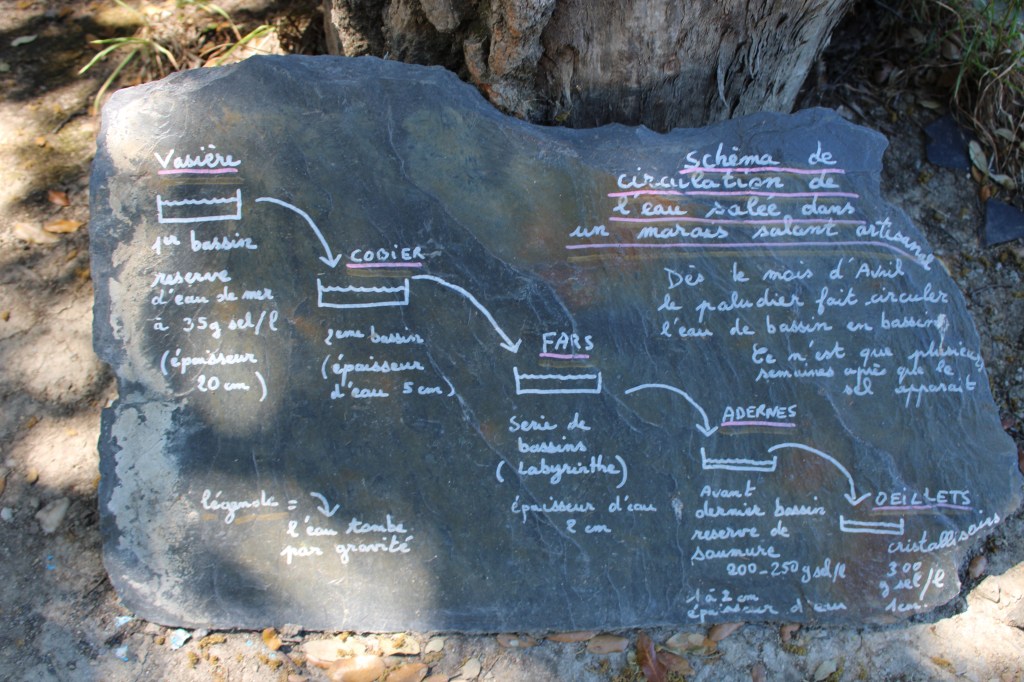 Schéma de
circulation de
l'eau salée dans
un marais salant artisanal
Dès le mois d'Avril
le paludier fait circuler
l'eau de bassin en bassin
Ce n'est que plusieurs
semaines après que le
sel apparait
Vasière
1er bassin
reserve
d'eau de mer
à 35g sel/l
(épaisseur
20 cm)
COBIER
2eme bassin
(épaisseur
d'eau 5 cm)
FARS
Serie de
bassins
(Labyrinthe)
épaisseur d'eau
2 cm
ADERNES
Avant
dernier bassin
reserve de
saumure
200-250g sel/l
1 à 2 cm
épaisseur d'eau
OEILLETS
cristallisoirs
300
g sel/l
1cm.
légende =
l'eau tombe
par gravité